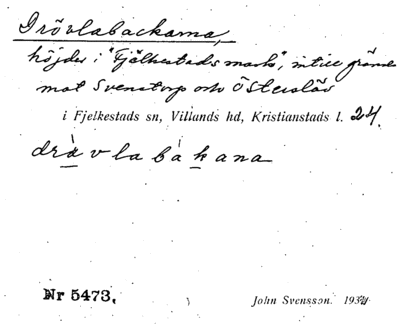 Drövlabackarna,
höjder i "Fjälkestads mark", intill gränsen
mot Svenstorp och Österslöv
i Fjelkestads sn, Villands hd, Kristianstads l. 24.
drävlabakana
Nr 5473.
John Svensson. 1934